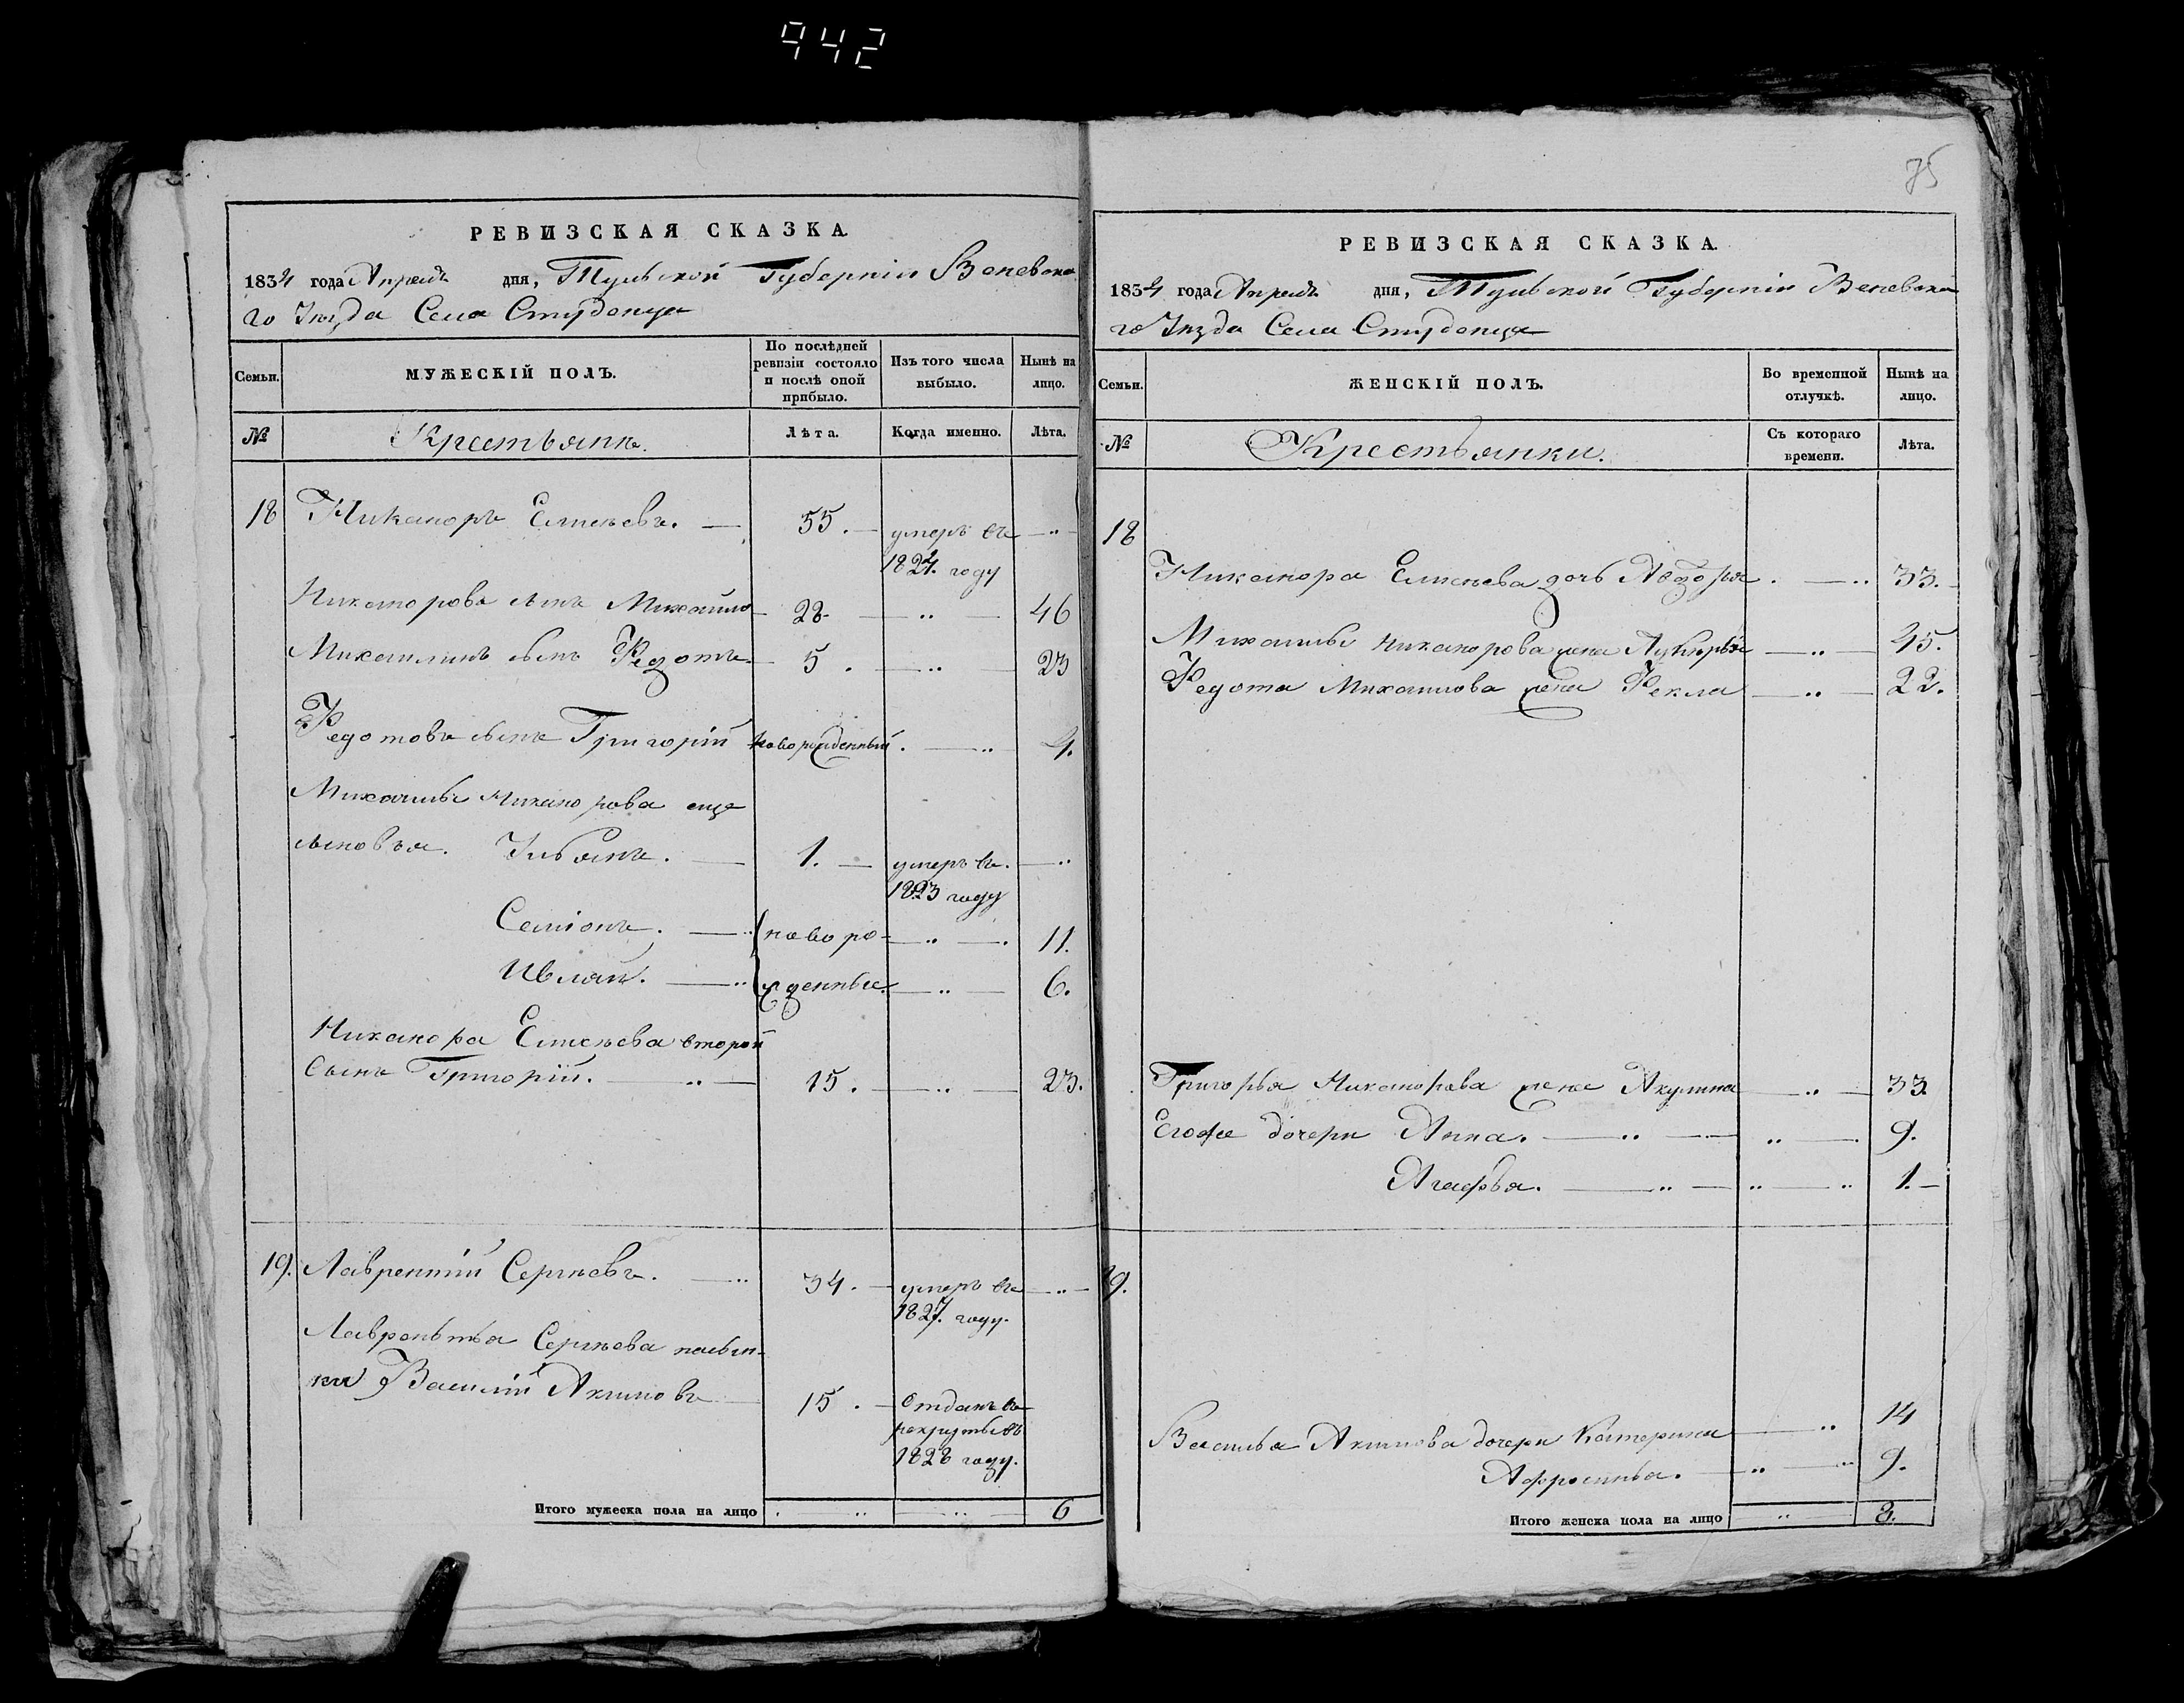 942
РЕВИЗСКАЯ СКАЗКА.
1834 года Апреля дня, Тульской Губерніи Веневска
го Уѣзда Села Студенца
Семьи.
МУЖЕСКІЙ ПОЛЪ.
По послѣдней
ревизіи состояло
и послѣ оной
прибыло.
Изъ того числа
выбыло.
Нынѣ на
лицо.
№
Крестьяне.
Лѣта.
Когда именно.
Лѣта.
18 Никаноръ Елисѣевъ. 55. умеръ въ
1824. году
Никаноровъ сынъ Михайло 28. 46
Михайлинъ сынъ Федотъ 5. 23
Федотовъ сынъ Григорій новорожденный. 4.
Михайлы Никанорова еще
сыновья. Ульянъ. 1. умеръ въ.
1823 году
Семіонъ. новоро- 11.
Ивлай. жденные. 6.
Никанора Елисѣева второй
Сынъ Григорій. 15. 23.
19. Лаврентій Сергѣевъ. 34. умеръ въ
1827. году.
Лаврентья Сергѣева пасын-
ки Василій Акимовъ 15. Отданъ въ
рекруты въ
1828 году.
Итого мужеска пола на лицо 6
75
РЕВИЗСКАЯ СКАЗКА.
1834 года Апреля дня, Тульской Губерніи Веневска
го Уѣзда Села Студенца
Семьи.
ЖЕНСКІЙ ПОЛЪ.
Во временной
отлучкѣ.
Нынѣ на
лицо.
№
Крестьянки.
Съ котораго
времени.
Лѣта.
18
Никанора Елисѣева дочь Авдотья. 33.
Михайлы Никанорова жена Лукерья 45.
Федота Михайлова жена Фекла 22.
Григорья Никанорова жена Акулина 33.
Егоже дочери Анна. 9.
Агафья. 1.
19.
Василья Акимова дочери Катерина 14
Афросинья. 9.
Итого женска пола на лицо 8.